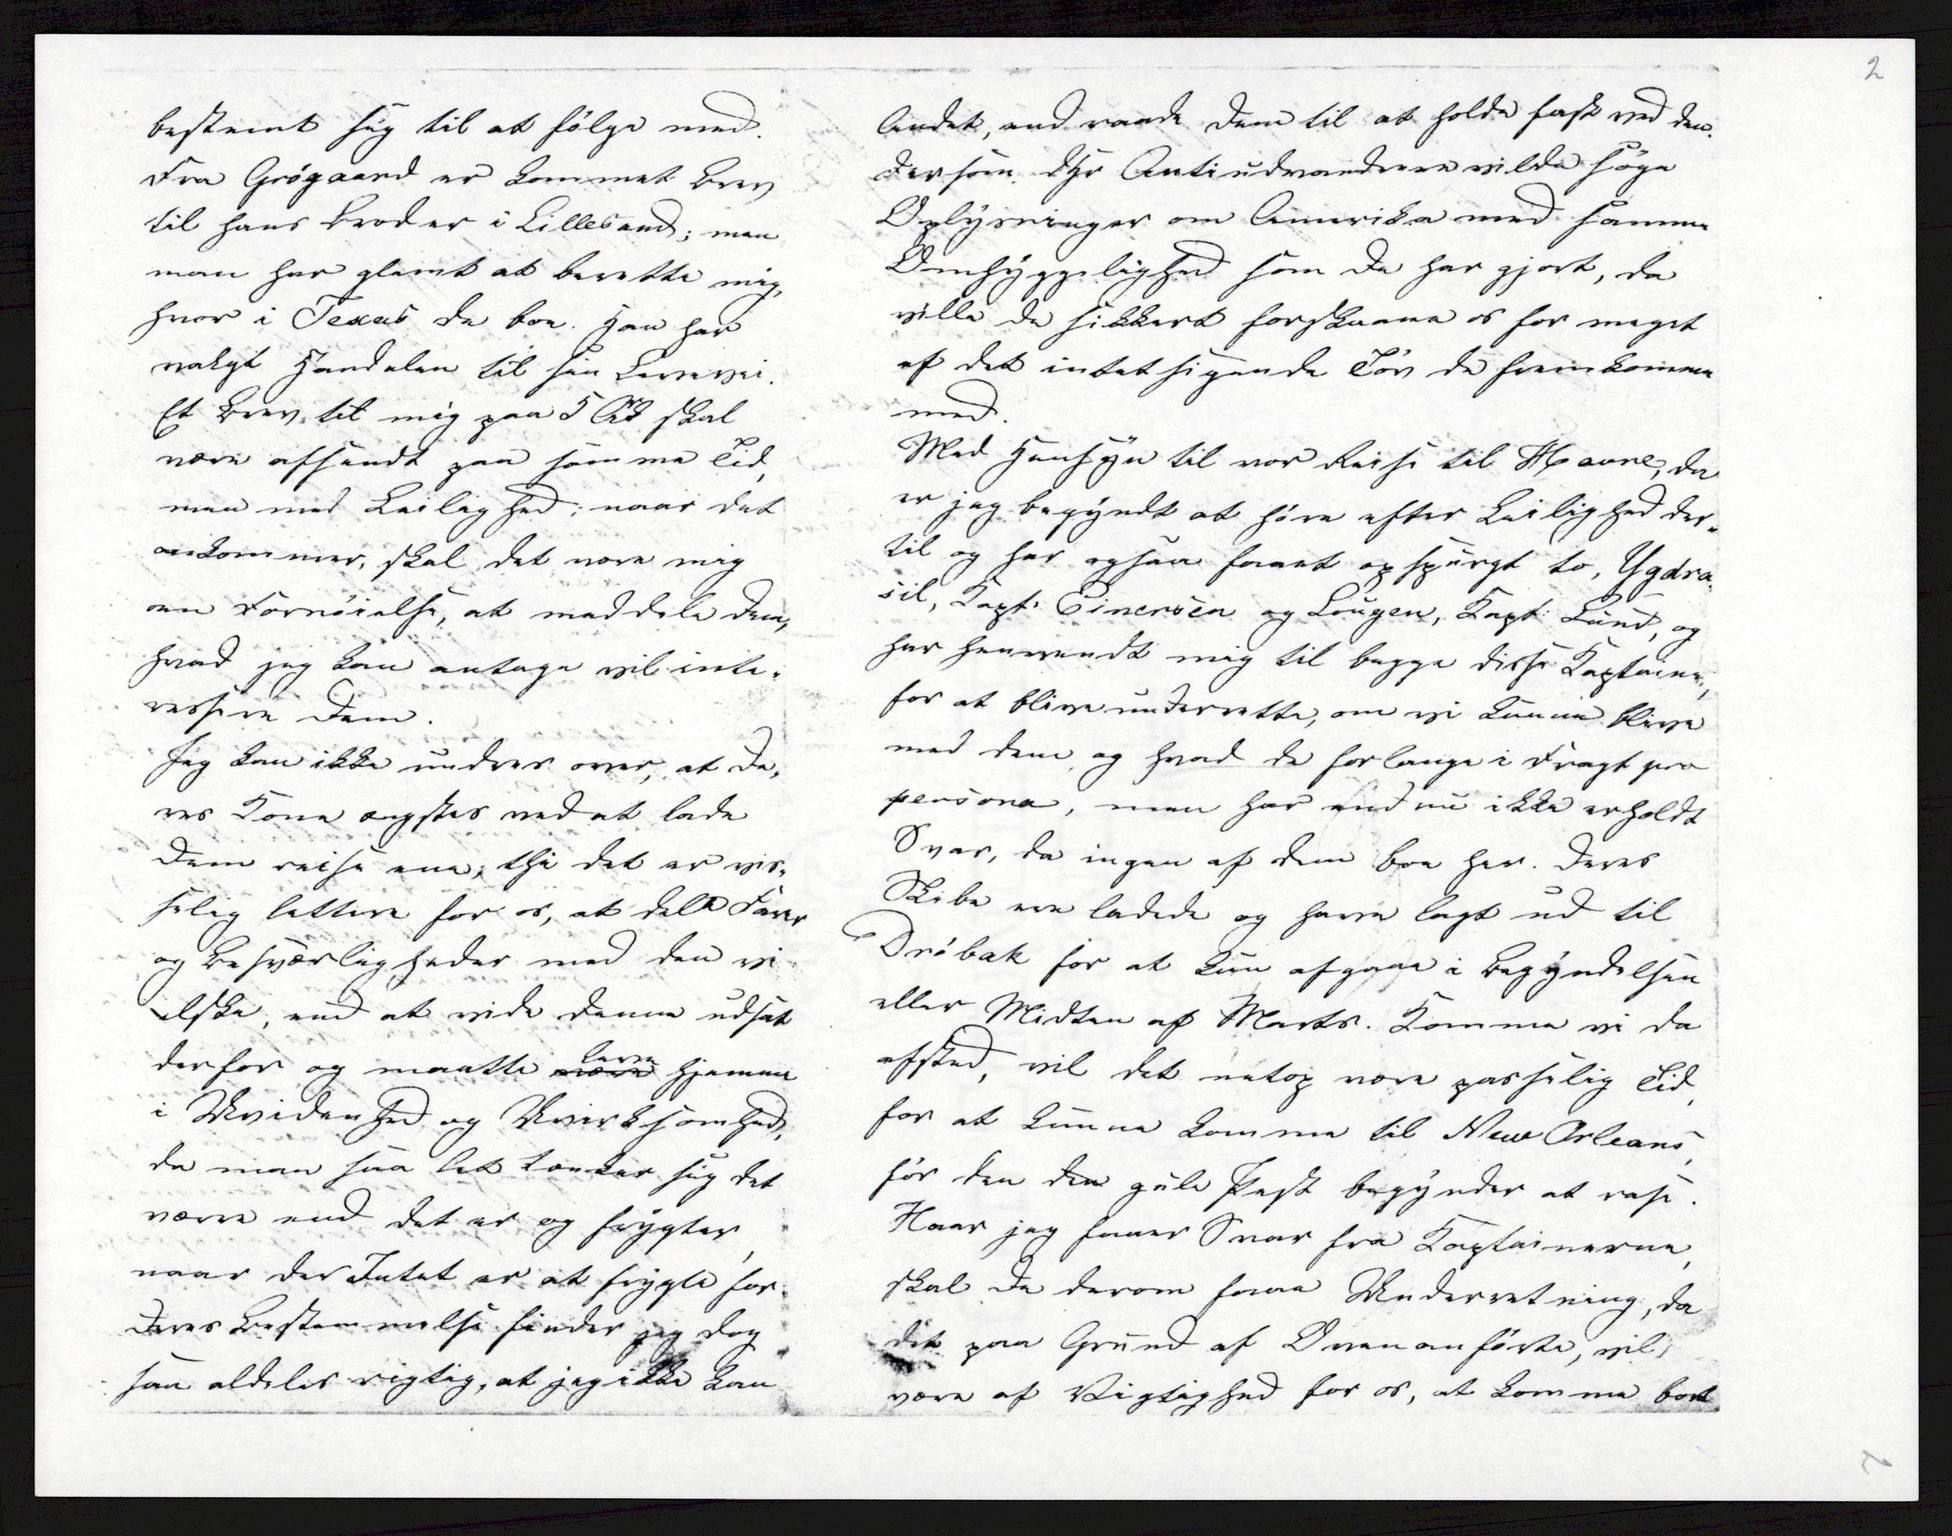 2
bestemt sig til at følge med.
Fra Grøgaard er kommet Brev
til hans Broder i Lillesand; men
man har glemt at berette mig,
hvor i Texas de boe. Han har
valgt Handelen til sin Levevei.
Et Brev til mig paa 5 Ark skal
være afsendt paa samme Tid,
men med Leilighed; naar det
ankommer, skal det være mig
en Fornøielse, at meddele Dem,
hvad jeg kan antage vil inte-
ressere Dem.
Jeg kan ikke undres over, at De-
res Kone ængstes ved at lade
Dem reise ene; thi det er vis-
selig lettere for os, at dele Farer
og Besværligheder med den vi
elske, end at vide denne udsat
derfor og maatte være leve hjemme
i Uvidenhed og Uvirksomhed,
da man saa let tænker sig det
værre end det er og frygter,
naar der Intet er at frygte for.
Deres Bestemmelse finder jeg dog
saa aldeles rigtig, at jeg ikke kan
Andet, end raade Dem til at holde fast ved den.
Dersom DHr Antiudvandrere vilde søge
Oplysninger om Amerika med samme
Omhyggelighed som De har gjort, da
ville de sikkert forskaane os for meget
af det intetsigende Tøv de fremkomme
med.
Med Hensyn til vor Reise til Havre, da
er jeg begyndt at høre efter Leilighed der-
til og har ogsaa faaet opspurgt to, Ygdra-
sil, Kapt: Einersen og Lougen, Kapt: Lund, og
har henvendt mig til begge disse Kaptainer,
for at blive underrette, om vi kunne blive
med dem og hvad de forlange i Fragt pro
persona, men har endnu ikke erholdt
Svar, da ingen af dem boe her. Deres
Skibe ere ladede og have lagt ud til
Drøbak for at kun afgaae i Begyndelsen
eller Midten af Marts. Komme vi da
afsted, vil det netop være passelig Tid,
for at kunne komme til New Orleans,
før den den gule Pest begynder at rase.
Naar jeg faaer Svar fra Kaptainerne,
skal De derom faae Underretning, da
det paa Grund af Ovenanførte, vil
være af Vigtighed for os, at komme bort
2